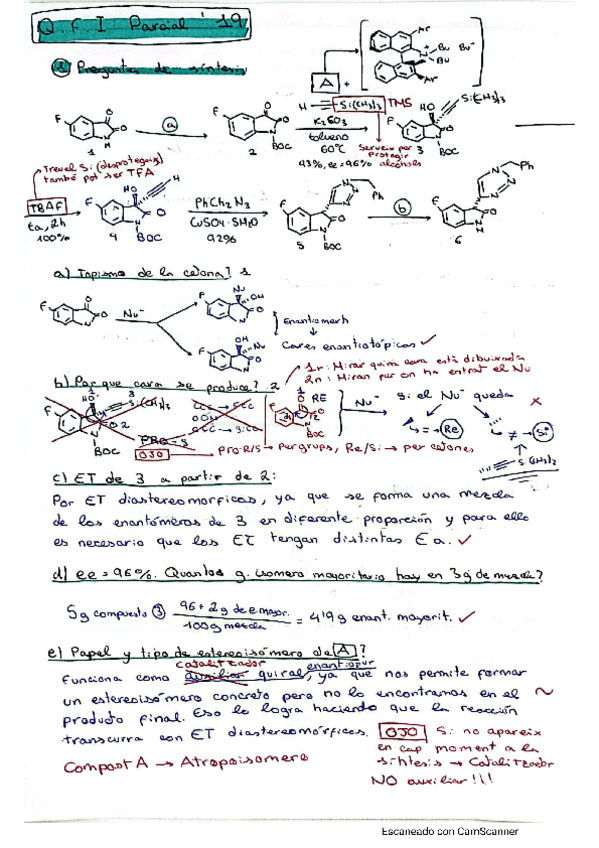 Q.F.I. Parcial '19
① Preguntas de síntesis
A +
Ar
N
Bu
Bu
Br⁻
Ar
H ≡ Si(CH₃)₃ TMS
F O O N H 1
a
F O O N BOC 2
K₂CO₃
tolueno
60ºC
93%, ee=96%
Serveix per
Protegir
alcohols
F HO Si(CH₃)₃ O N BOC 3
Treuel Si (desprotegeix)
també pot ser TFA
TBAF
ta, 2h
100%
F HO H O N BOC 4
PhCH₂N₃
CuSO₄·5H₂O
92%
F N N N Ph O N BOC 5
b
F N N N Ph O N H 6
a) Topismo de la cetona? 1
F O O N
Nu⁻
F Nu OH O N
F OH Nu O N
Enantiomers
Cares enantiotópicas ✓
1r: Mirar quina cara està dibuixada
2n: Mirar per on ha entrat el Nu
b) Por que cara se produce? 2
HO 1 3 Si(CH₃)₃ F O 2 N BOC
CCC → 
OOH
CCC →
PRO-S
1 O RE F O 2 N BOC
Nu⁻
Si el Nu⁻ queda
= Re
≠ → Si
×
Si(CH₃)₃
OJO → pro-R/S → per grups, Re/Si → per cetones
c) ET de 3 a partir de 2:
Por ET diastereomorficos, ya que se forma una mezcla
de los enantómeros de 3 en diferente proporción y para ello
es necesario que los ET tengan distintas Ea. ✓
d) ee = 96%. Quantos g. isomero mayoritario hay en 5g de mezcla?
5g compuesto ③ 96+2 g de e mayor. / 100g mezcla = 4,9 g enant. mayorit. ✓
e) Papel y tipo de estereoisómero de A?
catalitzador enantiopur
Funciona como auxiliar quiral, ya que nos permite formar
un estereoisómero concreto pero no lo encontramos en el ~
producto final. Eso lo logra haciendo que la reacción
transcurra con ET diastereomórficos. OJO Si no apareix
en cap moment a la
síntesis → Catalitzador
NO auxiliar!!!
Compost A → Atropoisomero
Escaneado con CamScanner